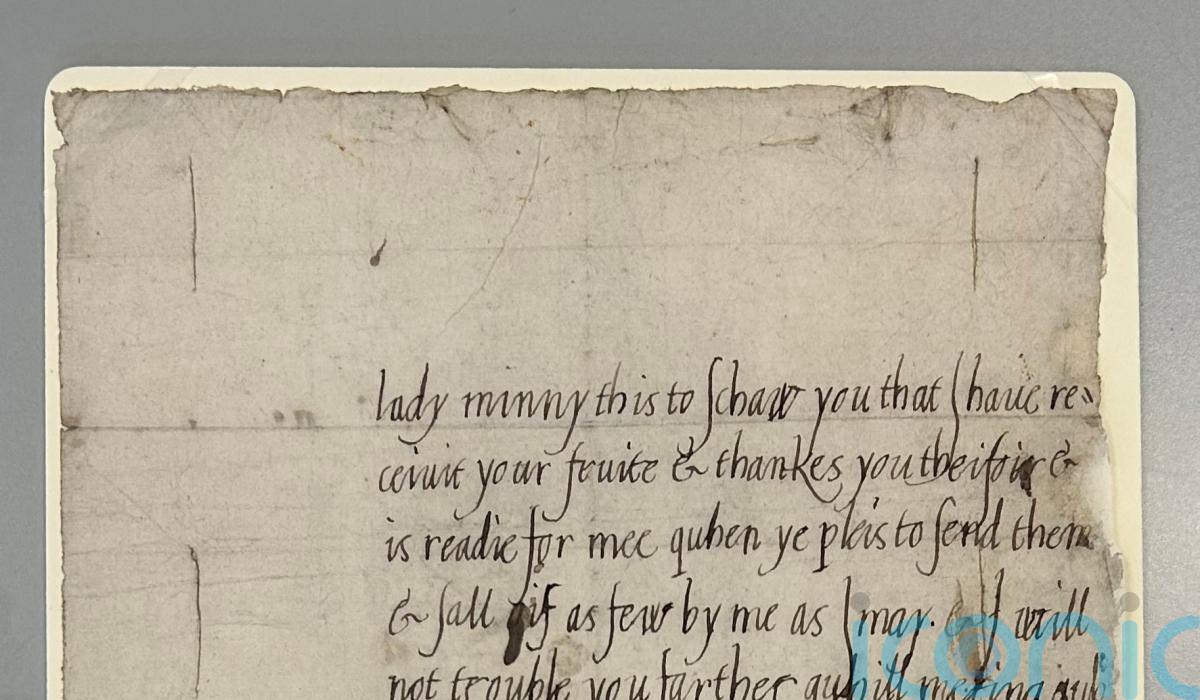 lady minny this to schaw you that I haue re-
ceiuit your fruite & thankes you theifoir &
is readie for mee quhen ye pleis to send them
& sall gif as few by me as I may. And I will
not trouble you farther quhill meting quh
iconic